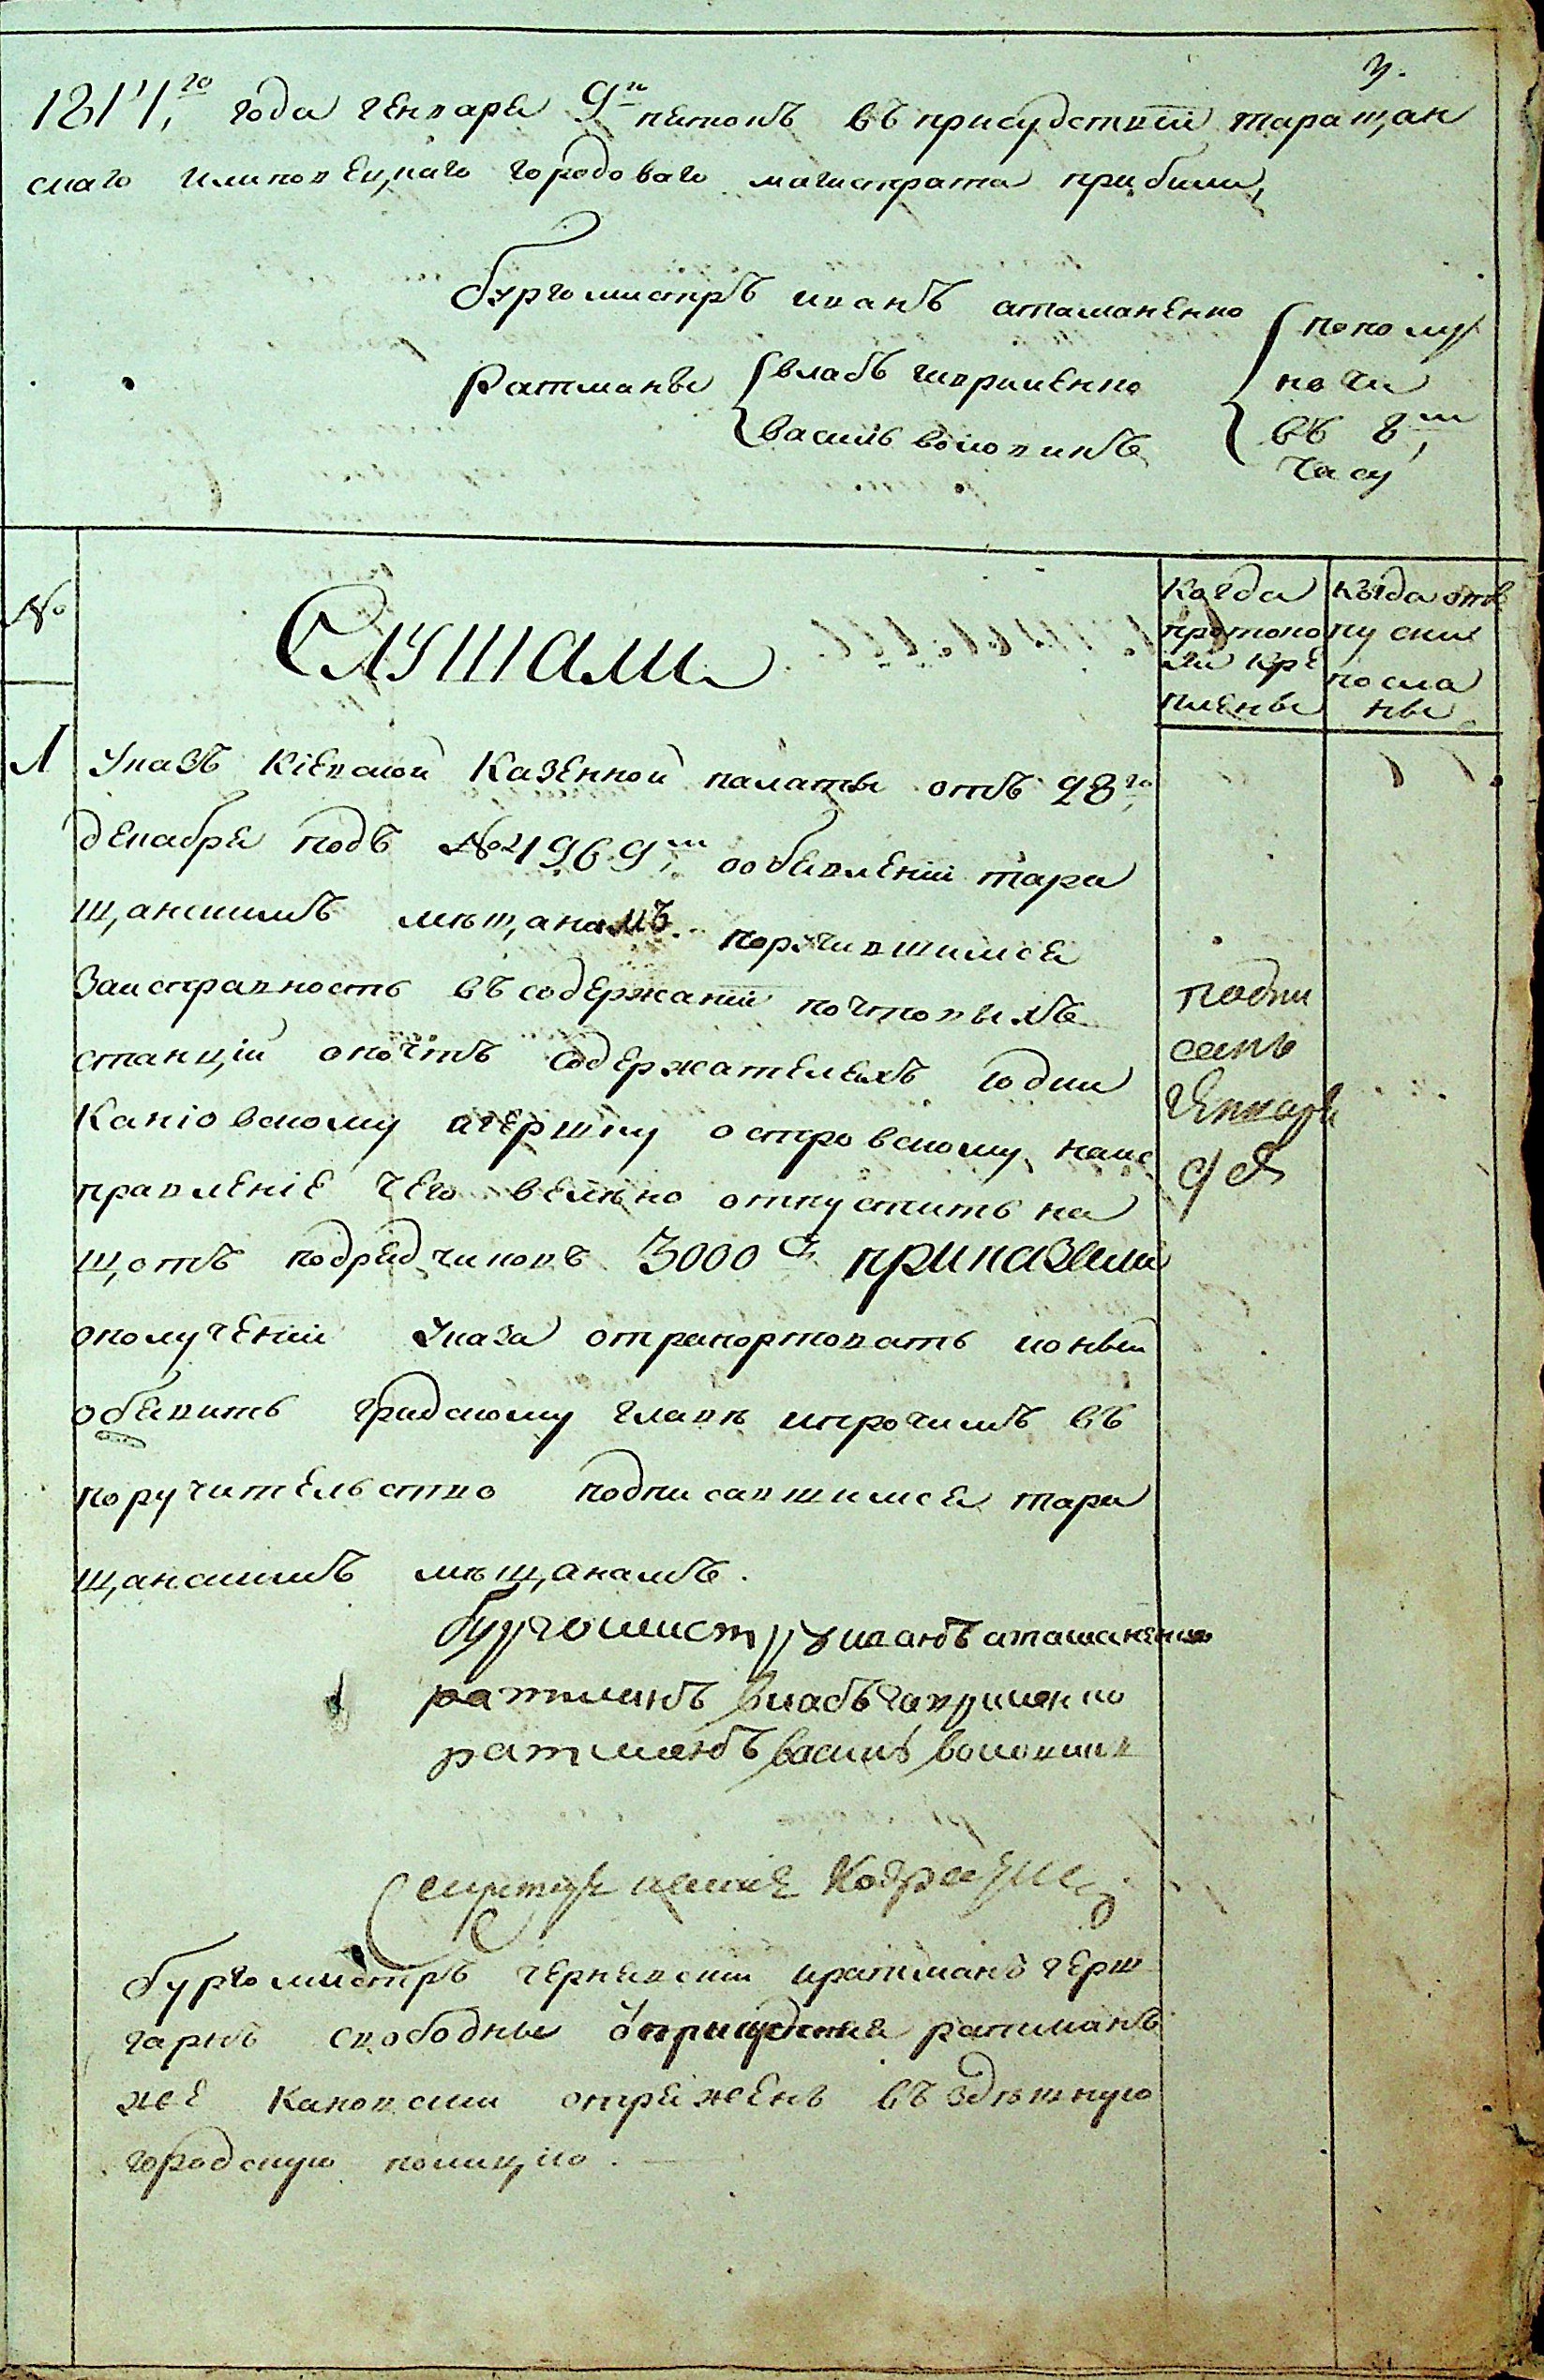 3.
1814го года генваря 9го пятокъ въ присудствіи таращан
скаго илиповецкаго городоваго магистрата прибыли,
бургомистръ иванъ атаманенко
Ратманы
власъ гавриленко
василь воловикъ
пополу
ночи
въ 8м
часу
№
Слушали
Когда протоко
лы кре
плены
Когда отъ
пуски
посла
ны
1
Указъ Кіевской Казенной палаты отъ 28го
декабря подъ №
объявленіи тара
щанскимъ мѣщанамъ поручившимся
Заисправность въ содержаніи почтовыхъ
станцій опочтъ содержателяхъ юдки
Каніовскому агершку островскому, наис
правленіе чего велѣно отпустить на
щотъ подрядчиковъ 3000 приказали
ополученіи Указа отрапортовать іоный
обявить градскому главѣ ипрочимъ въ
поручительство подписавшимся тара
щанскимъ мѣщанамъ.
подпи
санъ
генваря
9 д
бургомистръ иванъ атаманенко
ратманъ власъ гавриленко
ратманъ василь воловик
Секретарь
бургомистръ чернявскій иратманъ герш
гарнъ свободны ратманъ
же Каковскій отряженъ въ здѣшнюю
городскую полицію.